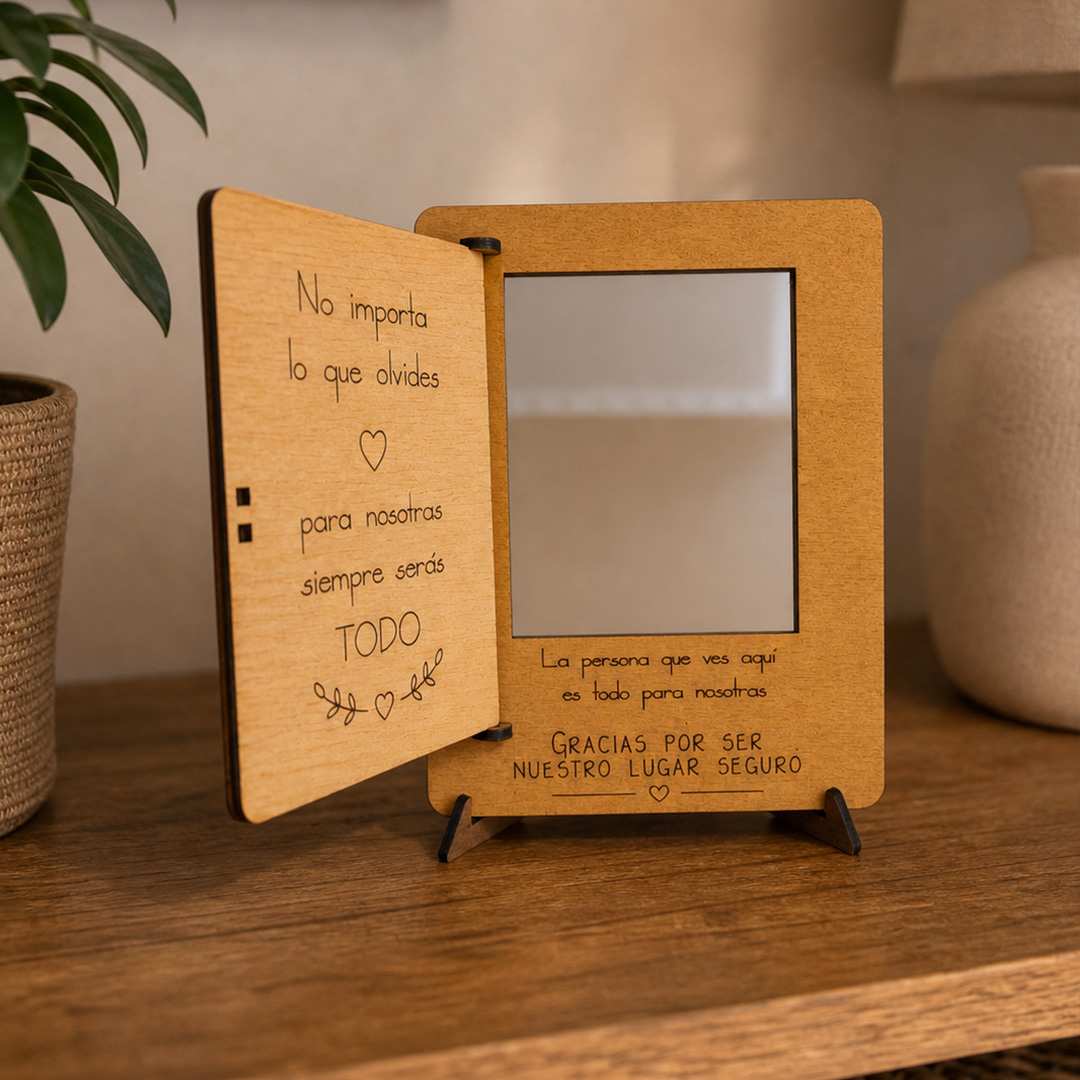 No importa
lo que olvides
para nosotras
siempre serás
TODO
La persona que ves aquí
es todo para nosotras
GRACIAS POR SER
NUESTRO LUGAR SEGURO